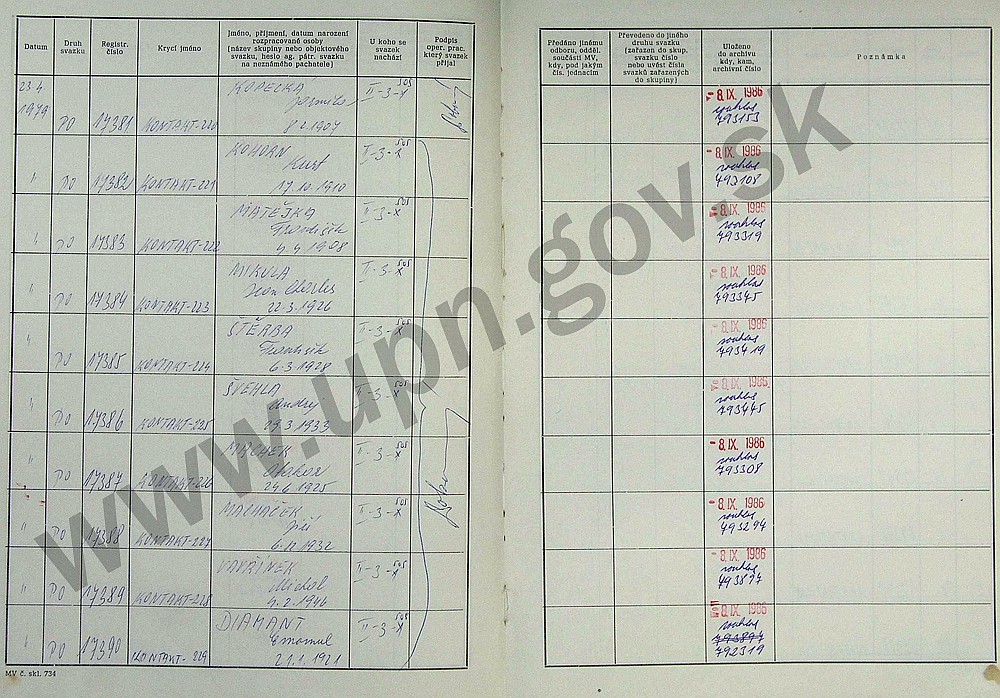 Datum
Druh svazku
Registr. číslo
Krycí jméno
Jméno, příjmení, datum narození rozpracované osoby (název skupiny nebo objektového svazku, heslo ag. pátr. svazku na neznámého pachatele)
U koho se svazek nachází
Podpis oper. prac. který svazek přijal
Předáno jinému odboru, odděl. součásti MV, kdy, pod jakým čís. jednacím
Převedeno do jiného druhu svazku (zařazen do skup. svazku číslo nebo uvést čísla svazků zařazených do skupiny)
Uloženo do archívu kdy, kam, archivní číslo
Poznámka
23 4 1979 PO 17381 KONTAKT-220 KOPECKÁ Jarmila 8 2 1907 II-3-X 505
- 8. IX. 1986 souhlas 793153
" PO 17382 KONTAKT-221 KOHORN Kurt 17. 10. 1910 II-3-X 505
- 8. IX. 1986 souhlas 793108
" PO 17383 KONTAKT-222 MATĚJKA František 4. 4 1908 II-3-X 505
8. IX. 1986 souhlas 793319
" PO 17384 KONTAKT-223 MIKULA Jean Charles 22. 3. 1926 II-3-X 505
8. IX. 1986 souhlas 793345
" PO 17385 KONTAKT-224 ŠTĚRBA František 6. 3 1928 II-3-X 505
8. IX. 1986 souhlas 793419
" PO 17386 KONTAKT-225 ŠVEHLA Andrej 29. 3 1933 II-3-X 505
8. IX. 1986 souhlas 793445
" PO 17387 KONTAKT-226 MACHEK Otakar 24 6 1925 II-3-X 505
- 8. IX. 1986 souhlas 793308
" PO 17388 KONTAKT-227 MACHÁČEK Jiří 1932 II-3-X 505
- 8. IX. 1986 souhlas 793294
" PO 17389 KONTAKT-228 VAVŘINEK Michal 4. 2. 1946 II-3-X 505
- 8. IX. 1986 souhlas 793897
" PO 17390 KONTAKT-229 DIAMANT Emanuel 21. 1. 1921 II-3-X 505
8. IX. 1986 souhlas 793897 792319
MV č. skl. 734
www.upn.gov.sk